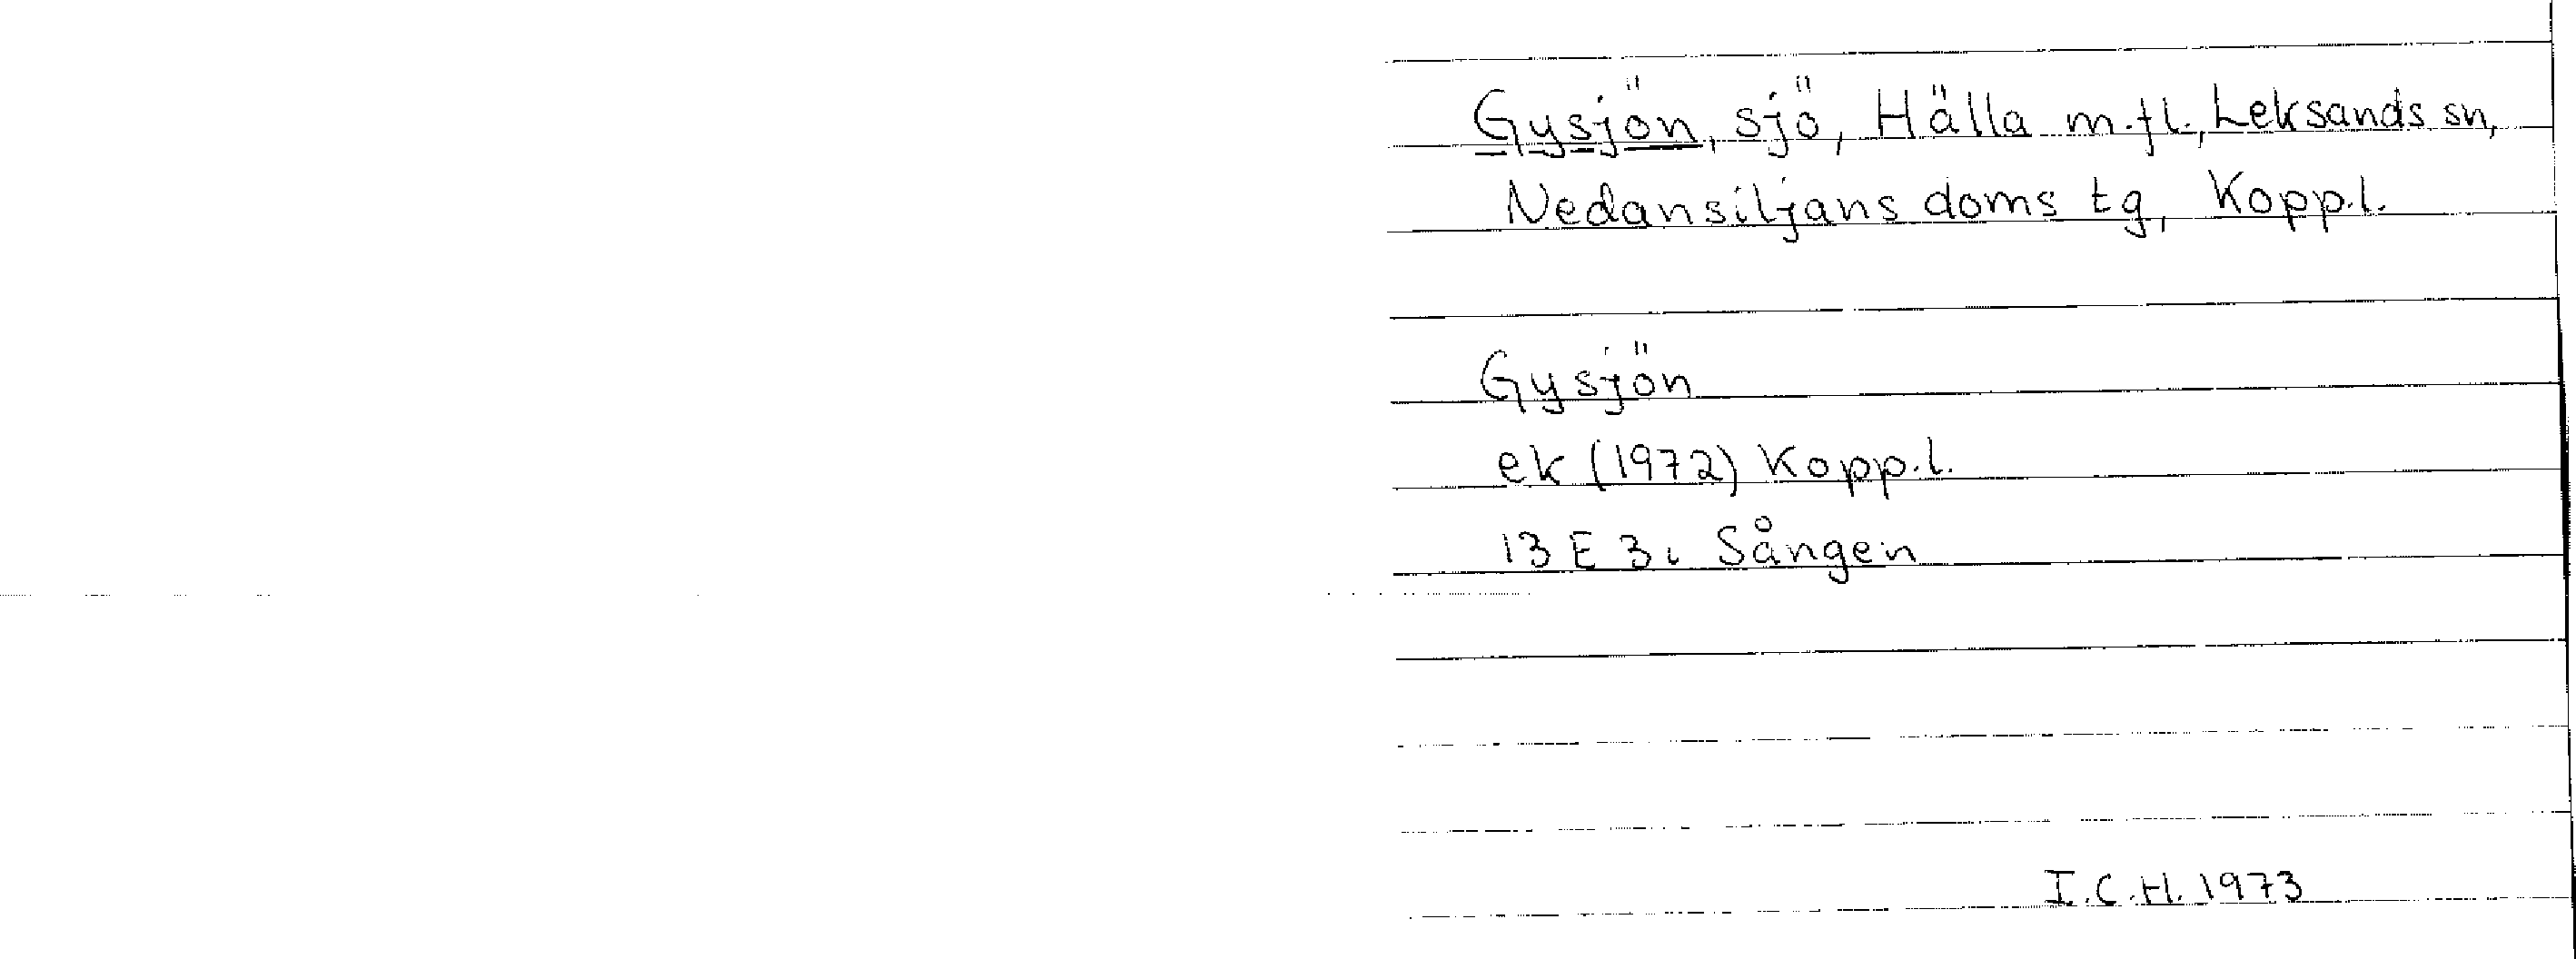 Gysjön, sjö, Hälla m.fl., Leksands sn,
Nedansiljans doms tg, Kopp.l.
Gysjön
ek (1972) Kopp.l.
13 E 3i Sången
I.C.H. 1973